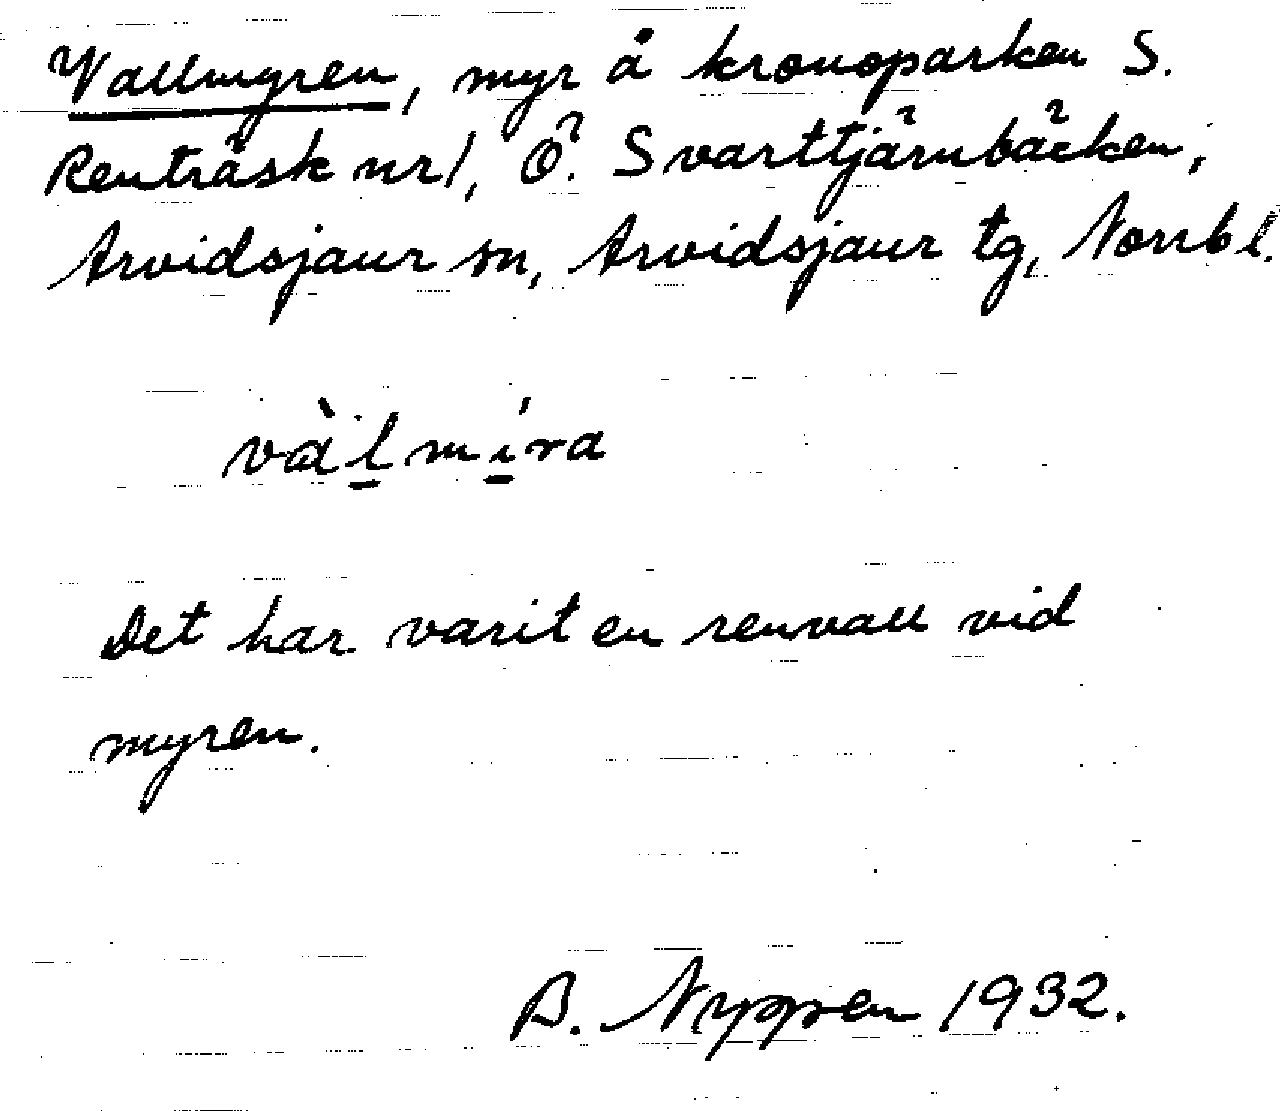 Vallmyren, myr å kronoparken S.
Renträsk nr 1, Ö. Svarttjärnbäcken,
Arvidsjaur sn, Arvidsjaur tg, Norrb l.
vàlmíra
Det har varit en renvall vid
myren.
B. Nyppen 1932.